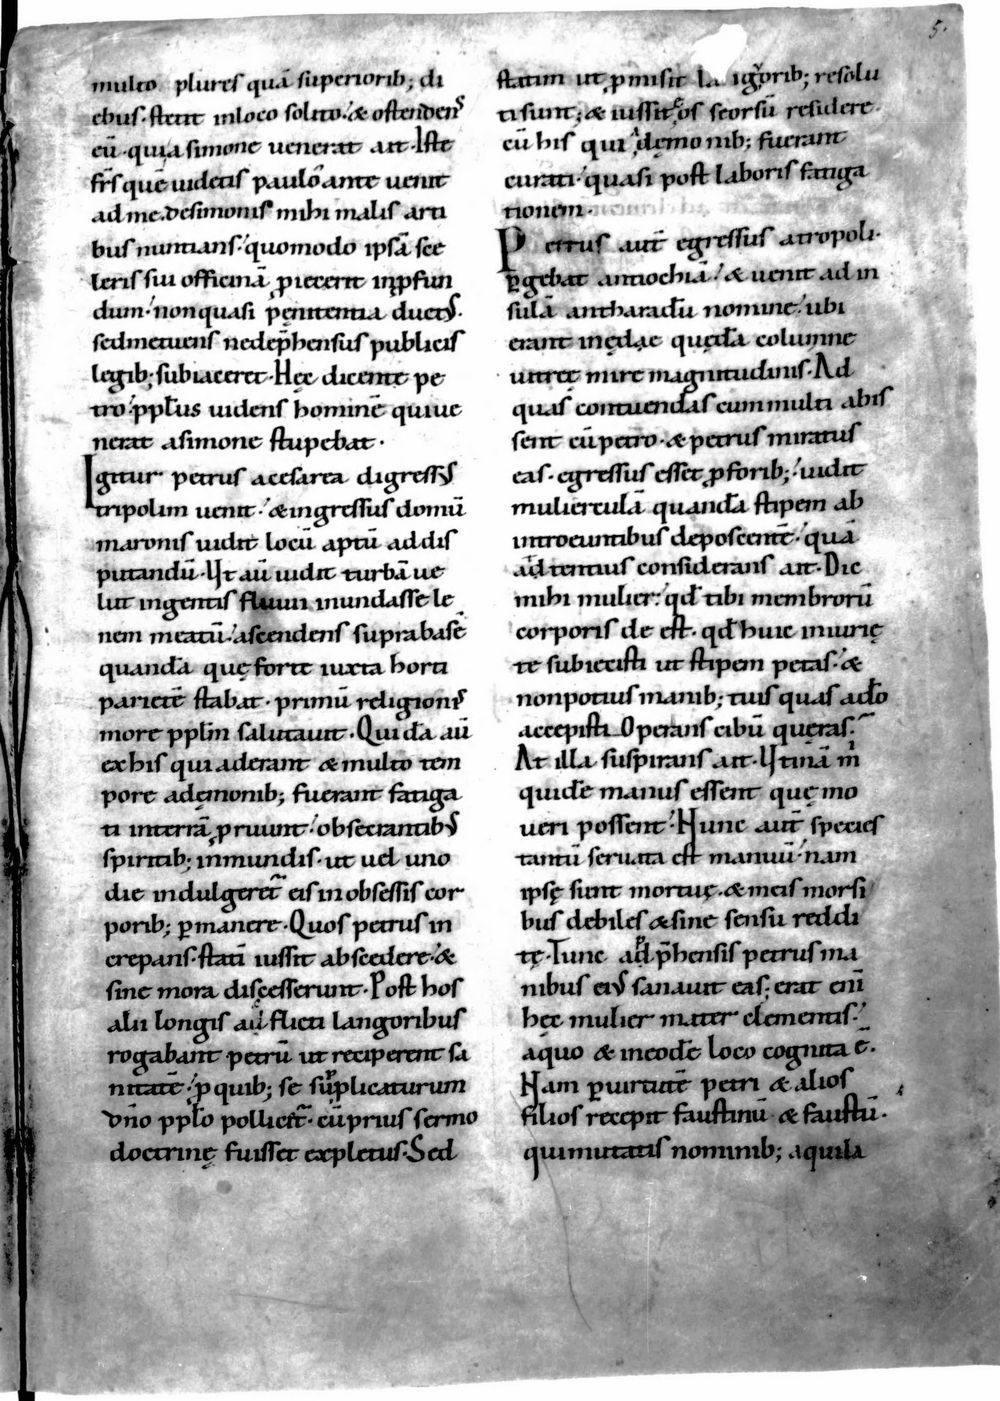 5.
multo plures quā superiorib; di
ebus. stetit inloco solito. & ostendens
eū. quia simone uenerat ait. Iste
frs quē uidetis pauloante uenit
ad me. desimonis mihi malis arti
bus nuntians. quomodo ipsā sce
leris sui officinā piecerit inpfun
dum. nonquasi pęnitentia ductus.
sedmetuens nedephensus publicis
legib; subiaceret. Hęc dicente pe
tro. ppłus uidens hominē quiue
nerat asimone stupebat.
Igitur petrus acesarea digressus
tripolim uenit. & ingressus domū
maronis uidit locū aptū addis
putandū. Ut aū uidit turbā ue
lut ingentis fluuii inundasse le
nem meatū. ascendens suprabasē
quandā quę forte iuxta horti
parietē stabat. primū religionis
more ppłm salutauit. Quidā aū
exhis qui aderant & multo tem
pore adęmonib; fuerant fatiga
ti interrā pruunt. obsecrantibus
spiritib; inmundis. ut uel uno
die indulgeret eis in obsessis cor
porib; pmanere. Quos petrus in
crepans. statī iussit abscedere. &
sine mora discesserunt. Post hos
alii longis afflicti langoribus
rogabant petrū ut reciperent sa
nitatē. p quib; se supplicaturum
dño ppło pollicet. cū prius sermo
doctrinę fuisset expletus. Sed
statim ut pmisit la igorib; resolu
ti sunt; & iussit eos seorsū residere
cū his qui adęmonib; fuerant
curati. quasi post laboris fatiga
tionem.
Petrus aut egressus atropoli.
pgebat antiochiā. & uenit ad in
sulā antharadū nomine. ubi
erant inędae quędā columne
uitreę mire magnitudinis. Ad
quas contuendas cum multi abis
sent cū petro. & petrus miratus
eas. egressus esset pforib; uidit
mulierculā quandā stipem ab
introeuntibus deposcentē. quā
adtentius considerans ait. Dic
mihi mulier. qđ tibi membrorū
corporis de est. qđ huic iniurię
te subiecisti ut stipem petas. &
nonpotius manib; tuis quas adō
accepisti. Operans cibū queras.
At illa suspirans ait. Utinā m
quidē manus essent quę mo
ueri possent. Nunc aut species
tantū seruata est manuū. nam
ipsę sunt mortuę. & meis morsi
bus debiles & sine sensu reddi
tę. Tunc adphensis petrus ma
nibus eius sanauit eas; erat enī
hęc mulier mater clementis.
aquo & ineodē loco cognita ē.
Nam puirtutē petri & alios
filios recepit faustinū & faustū.
quimutatis nominib; aquila